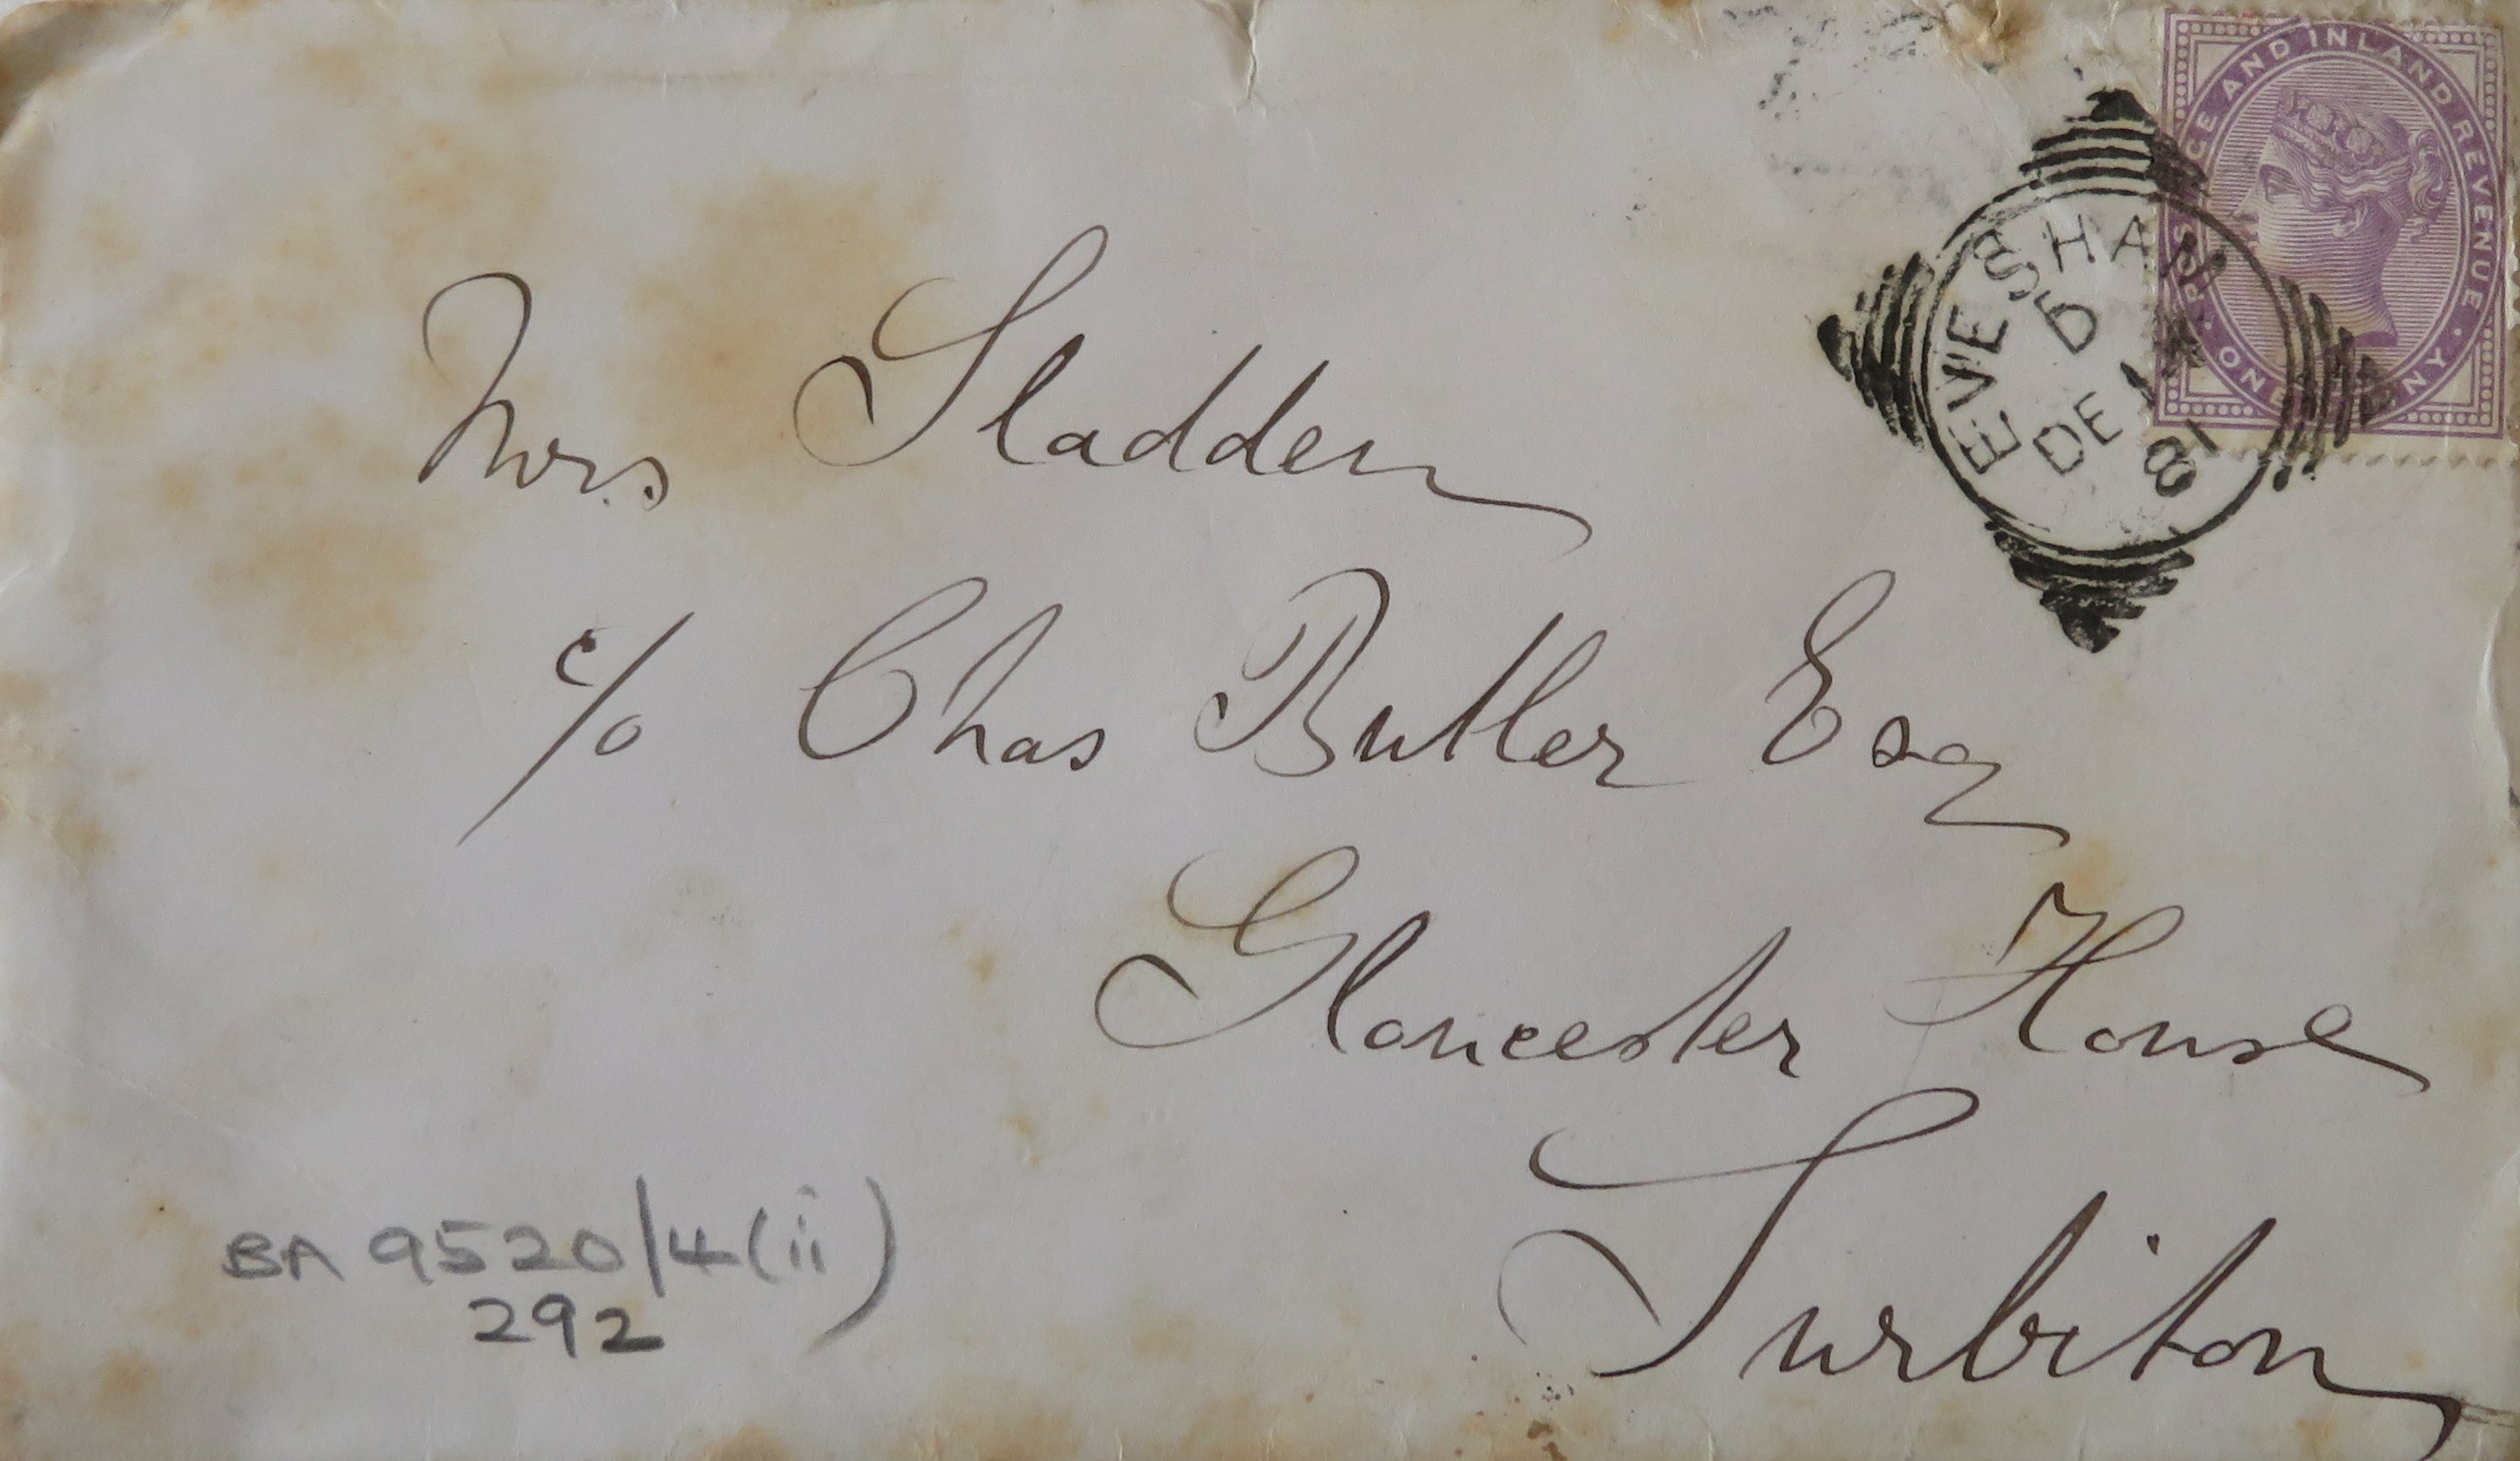 Mrs Sladden
c/o Chas Butler Esq
Gloucester House
Surbiton
BA 9520/4(ii)
292
POSTAGE AND INLAND REVENUE · ONE PENNY ·
EVESHAM
D
DE
81